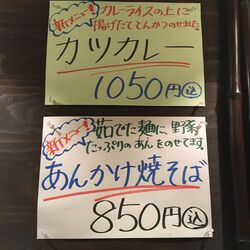 新メニュー!
カレーライスの上に
揚げたてとんかつのせました
カツカレー
1050円込
新メニュー!
茹でた麺に、野菜
たっぷりのあんをのせてます。
あんかけ焼そば
850円込